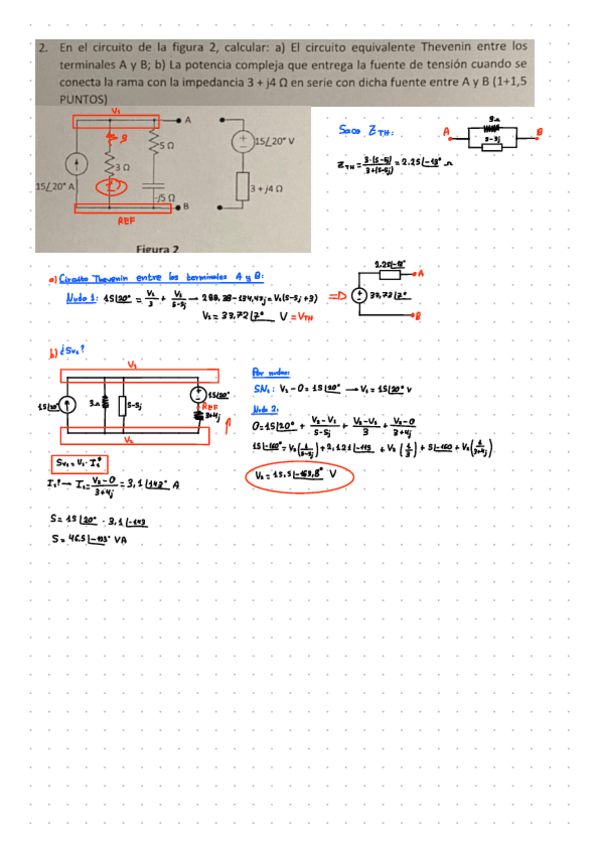 2. En el circuito de la figura 2, calcular: a) El circuito equivalente Thevenin entre los
terminales A y B; b) La potencia compleja que entrega la fuente de tensión cuando se
conecta la rama con la impedancia 3 + j4 Ω en serie con dicha fuente entre A y B (1+1,5
PUNTOS)
V₁
A
5 Ω
3 Ω
15∠20° A
-j5 Ω
B
REF
15∠20° V
3 + j4 Ω
Figura 2
Saco Z_TH:
A
3Ω
B
5-5j
Z_TH = 3·(5-5j)/3+(5-5j) = 2.25∠-13° Ω
a) Circuito Thevenin entre los terminales A y B:
Nudo 1: 15∠20° = V₁/3 + V₁/5-5j → 288,28-134,47j = V₁(5-5j+3)
V₁ = 33,72∠7° V = V_TH
=D
2,25∠-13°
A
33,72∠7°
B
b) ¿Sv₁?
V₁
15∠20°
3Ω
5-5j
15∠20°
REF
3+4j
V₂
Por nudos:
SN₁: V₁-0 = 15∠20° → V₁ = 15∠20° V
Nudo 2:
0 = 15∠20° + V₂-V₁/5-5j + V₂-V₁/3 + V₂-0/3+4j
V₂ = 15,5∠-163,8° V
Sv₁ = V₁ · I₁*
I₁? → I₁ = V₂-0/3+4j = 3,1∠143° A
S = 15∠20° · 3,1∠-143
S = 46.5∠-123° VA